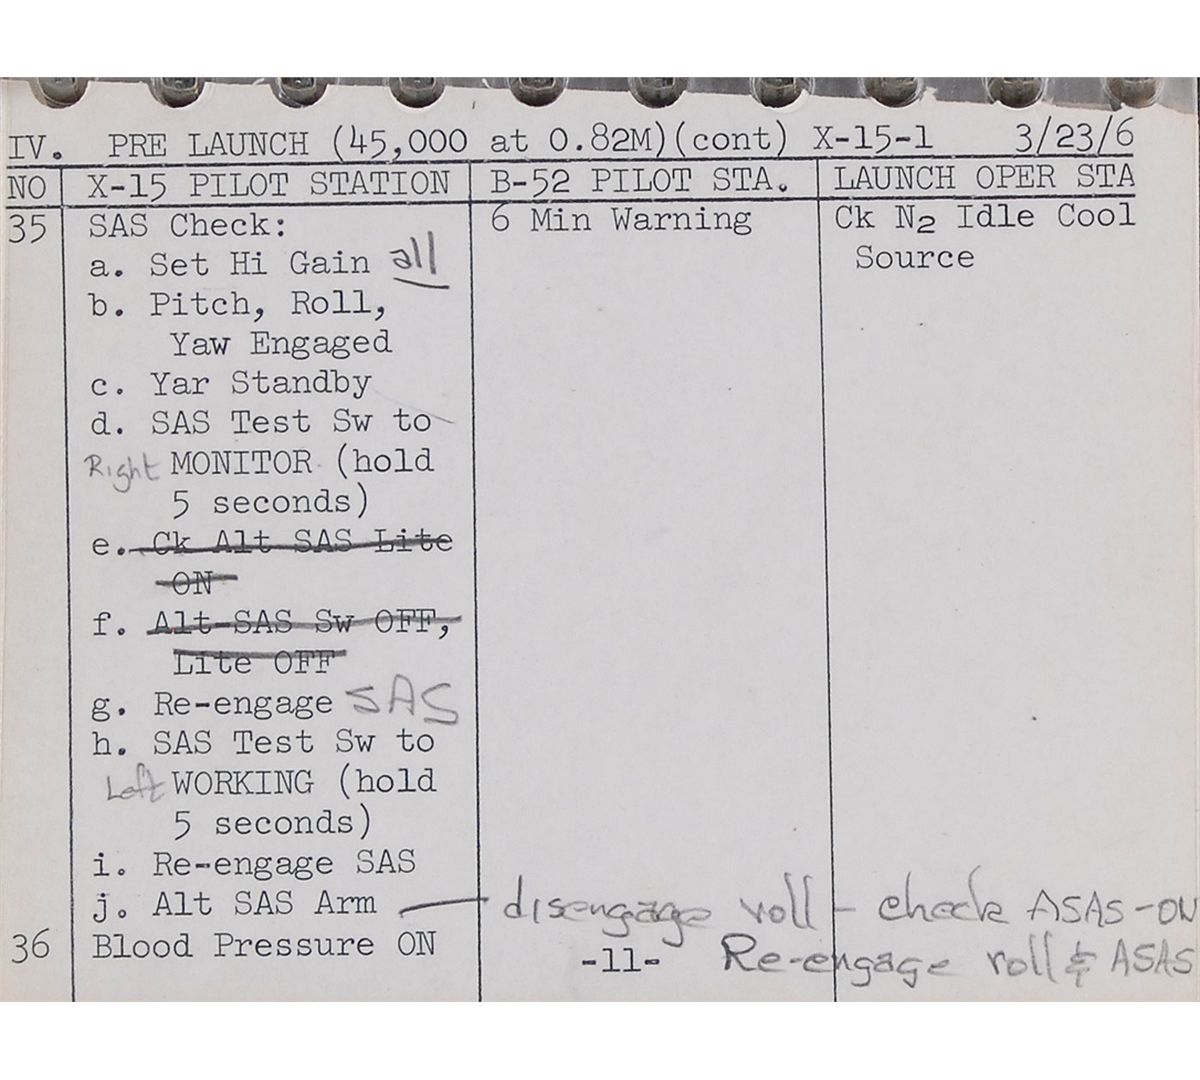 IV. PRE LAUNCH (45,000 at 0.82M)(cont) X-15-1 3/23/6
NO X-15 PILOT STATION B-52 PILOT STA. LAUNCH OPER STA
35 SAS Check: 6 Min Warning Ck N2 Idle Cool
Source
a. Set Hi Gain all
b. Pitch, Roll,
Yaw Engaged
c. Yar Standby
d. SAS Test Sw to
Right MONITOR (hold
5 seconds)
e. Ck Alt SAS Lite
ON
f. Alt SAS Sw OFF,
Lite OFF
g. Re-engage SAS
h. SAS Test Sw to
Left WORKING (hold
5 seconds)
i. Re-engage SAS
j. Alt SAS Arm — disengage roll - check ASAS-ON
36 Blood Pressure ON
-11- Re-engage roll & ASAS